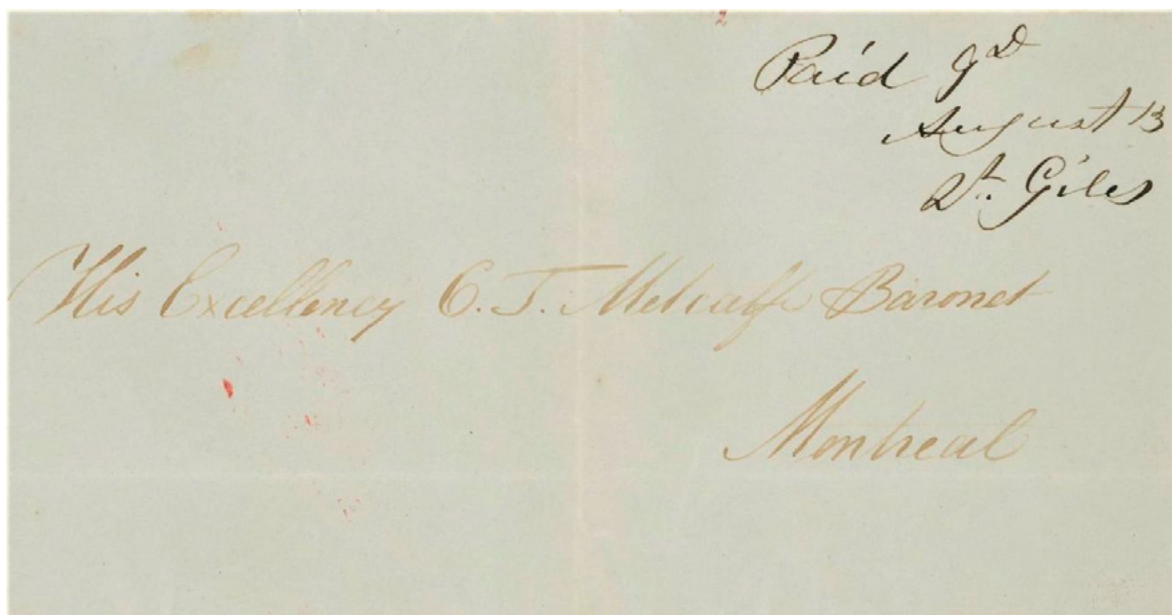 Paid 9D
August 13
St. Giles
His Excellency C. T. Metcalfe Baronet
Montreal